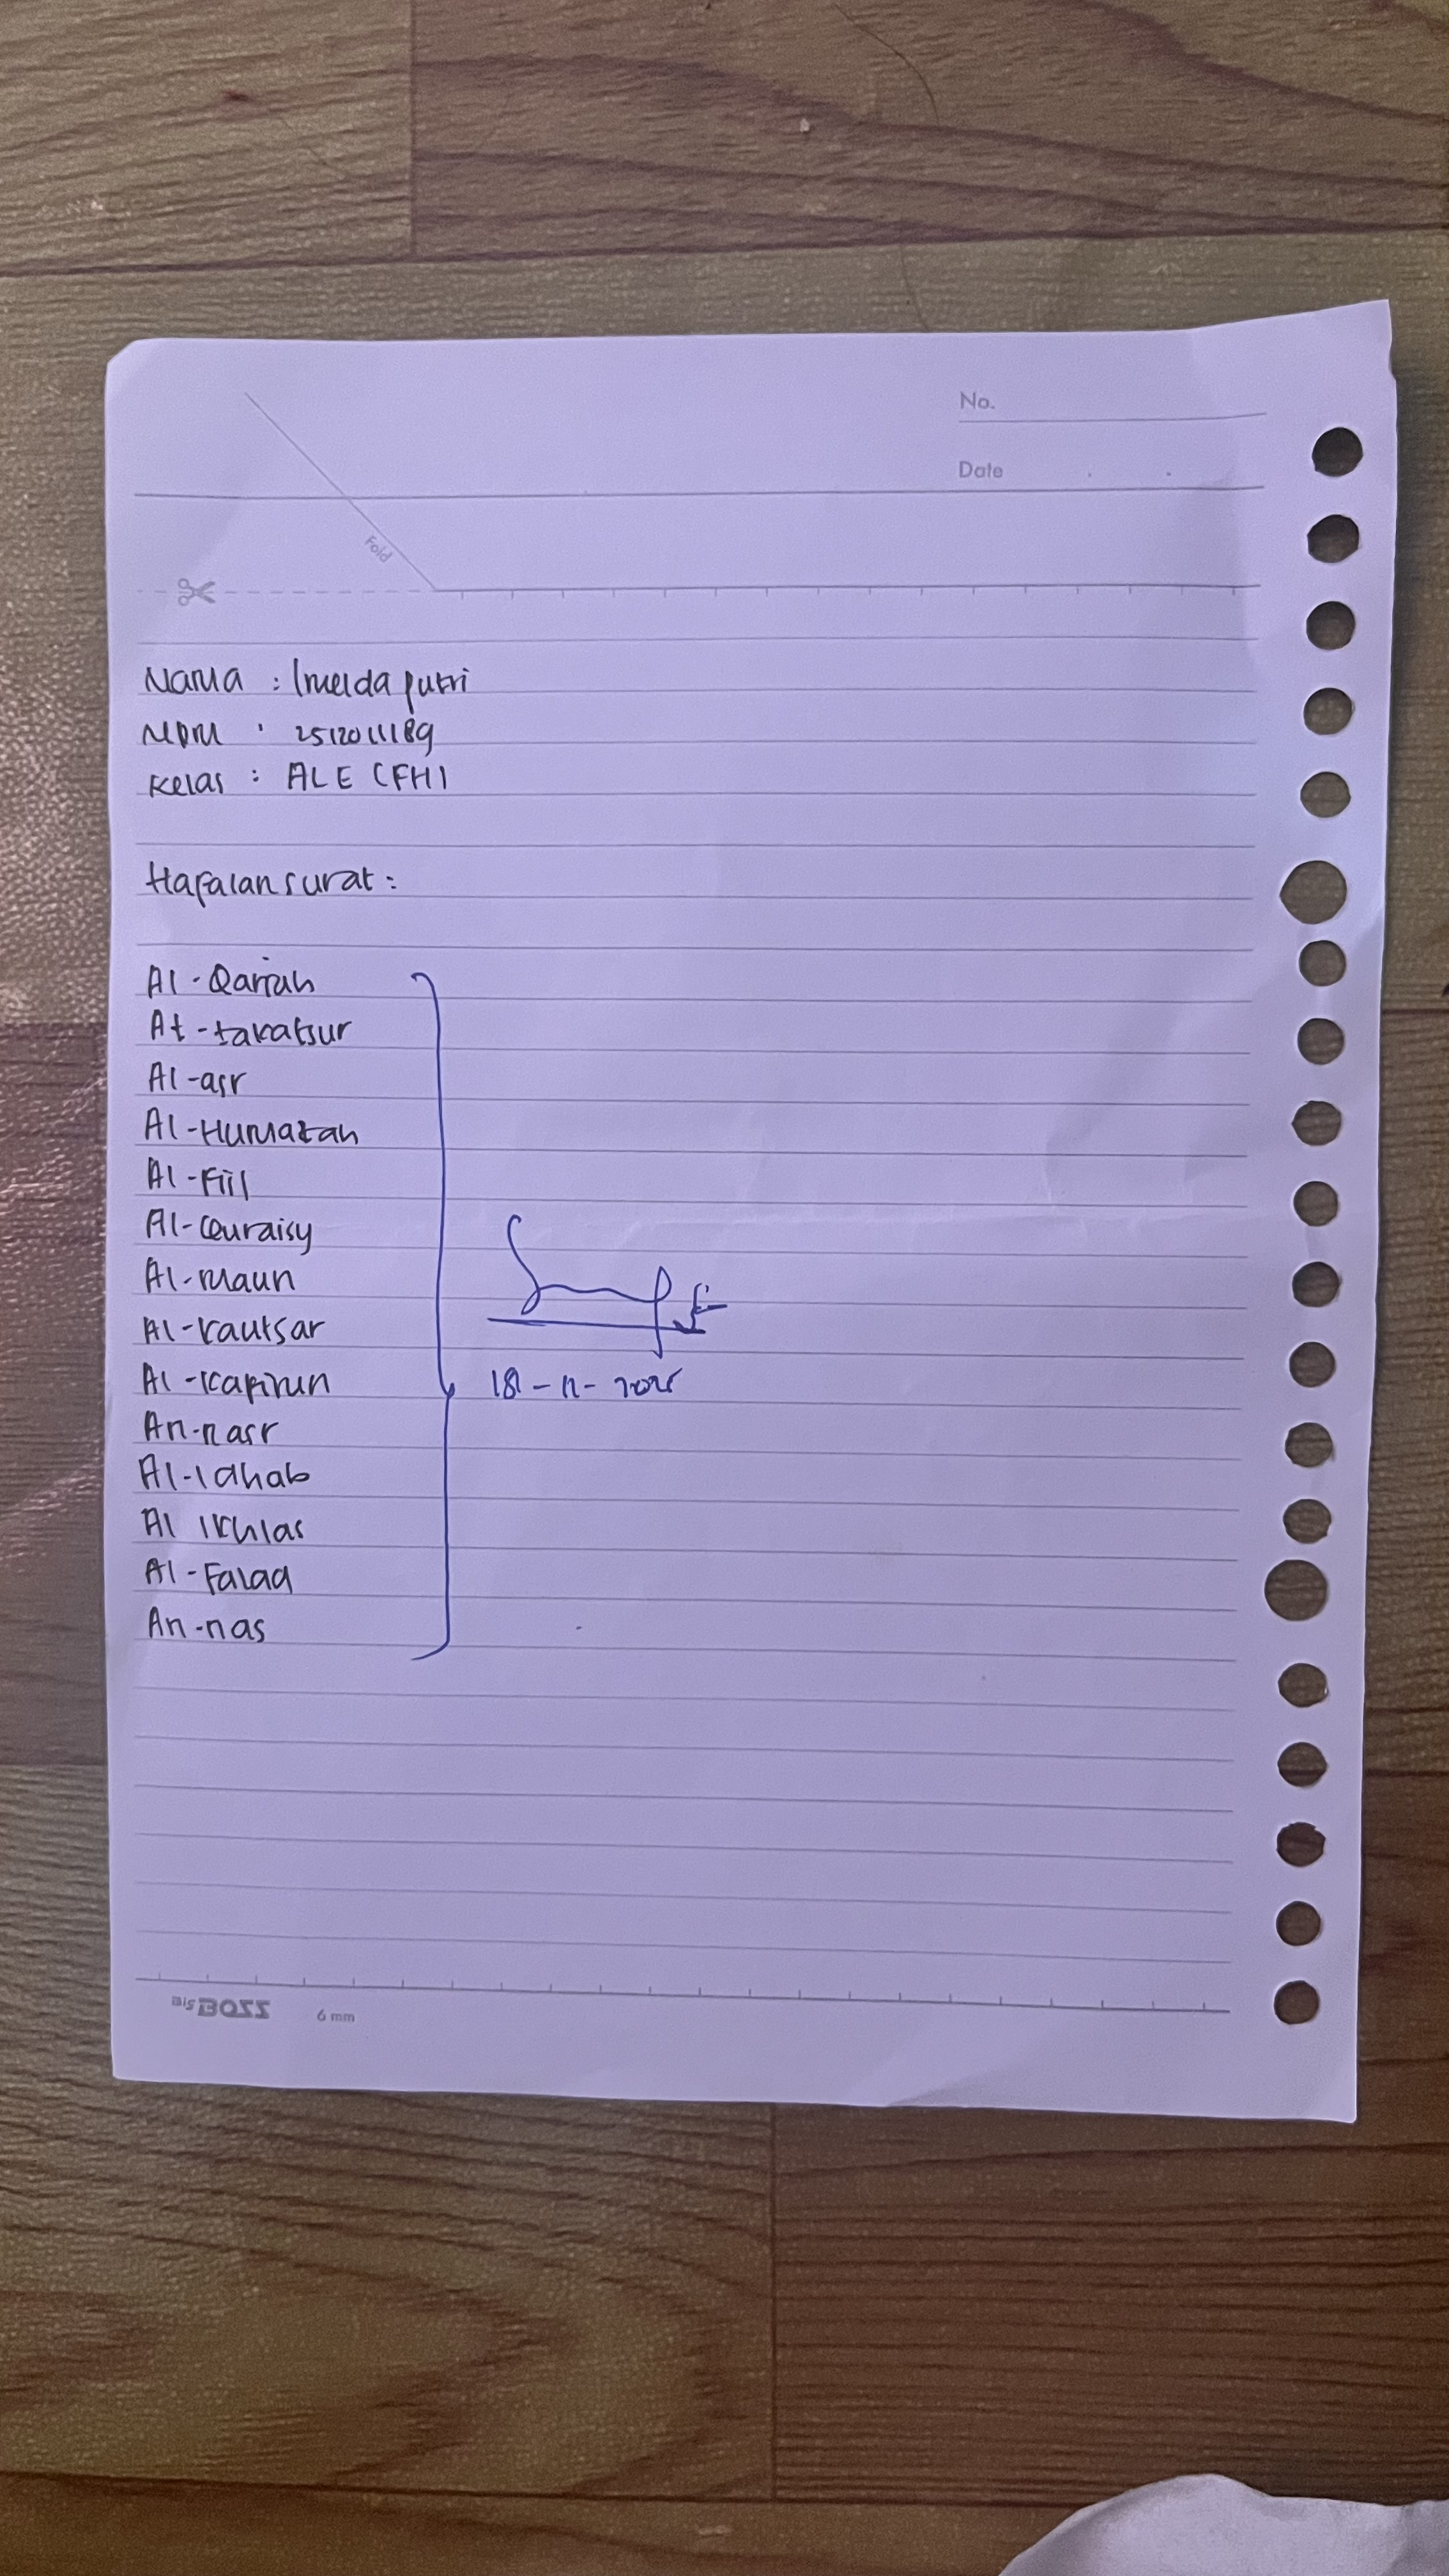 No.
Date
Fold
Nama : Imelda putri
NPM : 2512011189
Kelas : ALE (FH)
Hafalan surat :
Al - Qariah
At - takatsur
Al - asr
Al - Humazah
Al - Fiil
Al - Quraisy
Al - maun
Al - kautsar
Al - kafirun
18 - 11 - 2025
An - nasr
Al - lahab
Al Ikhlas
Al - Falaq
An - nas
Big BOSS 6 mm